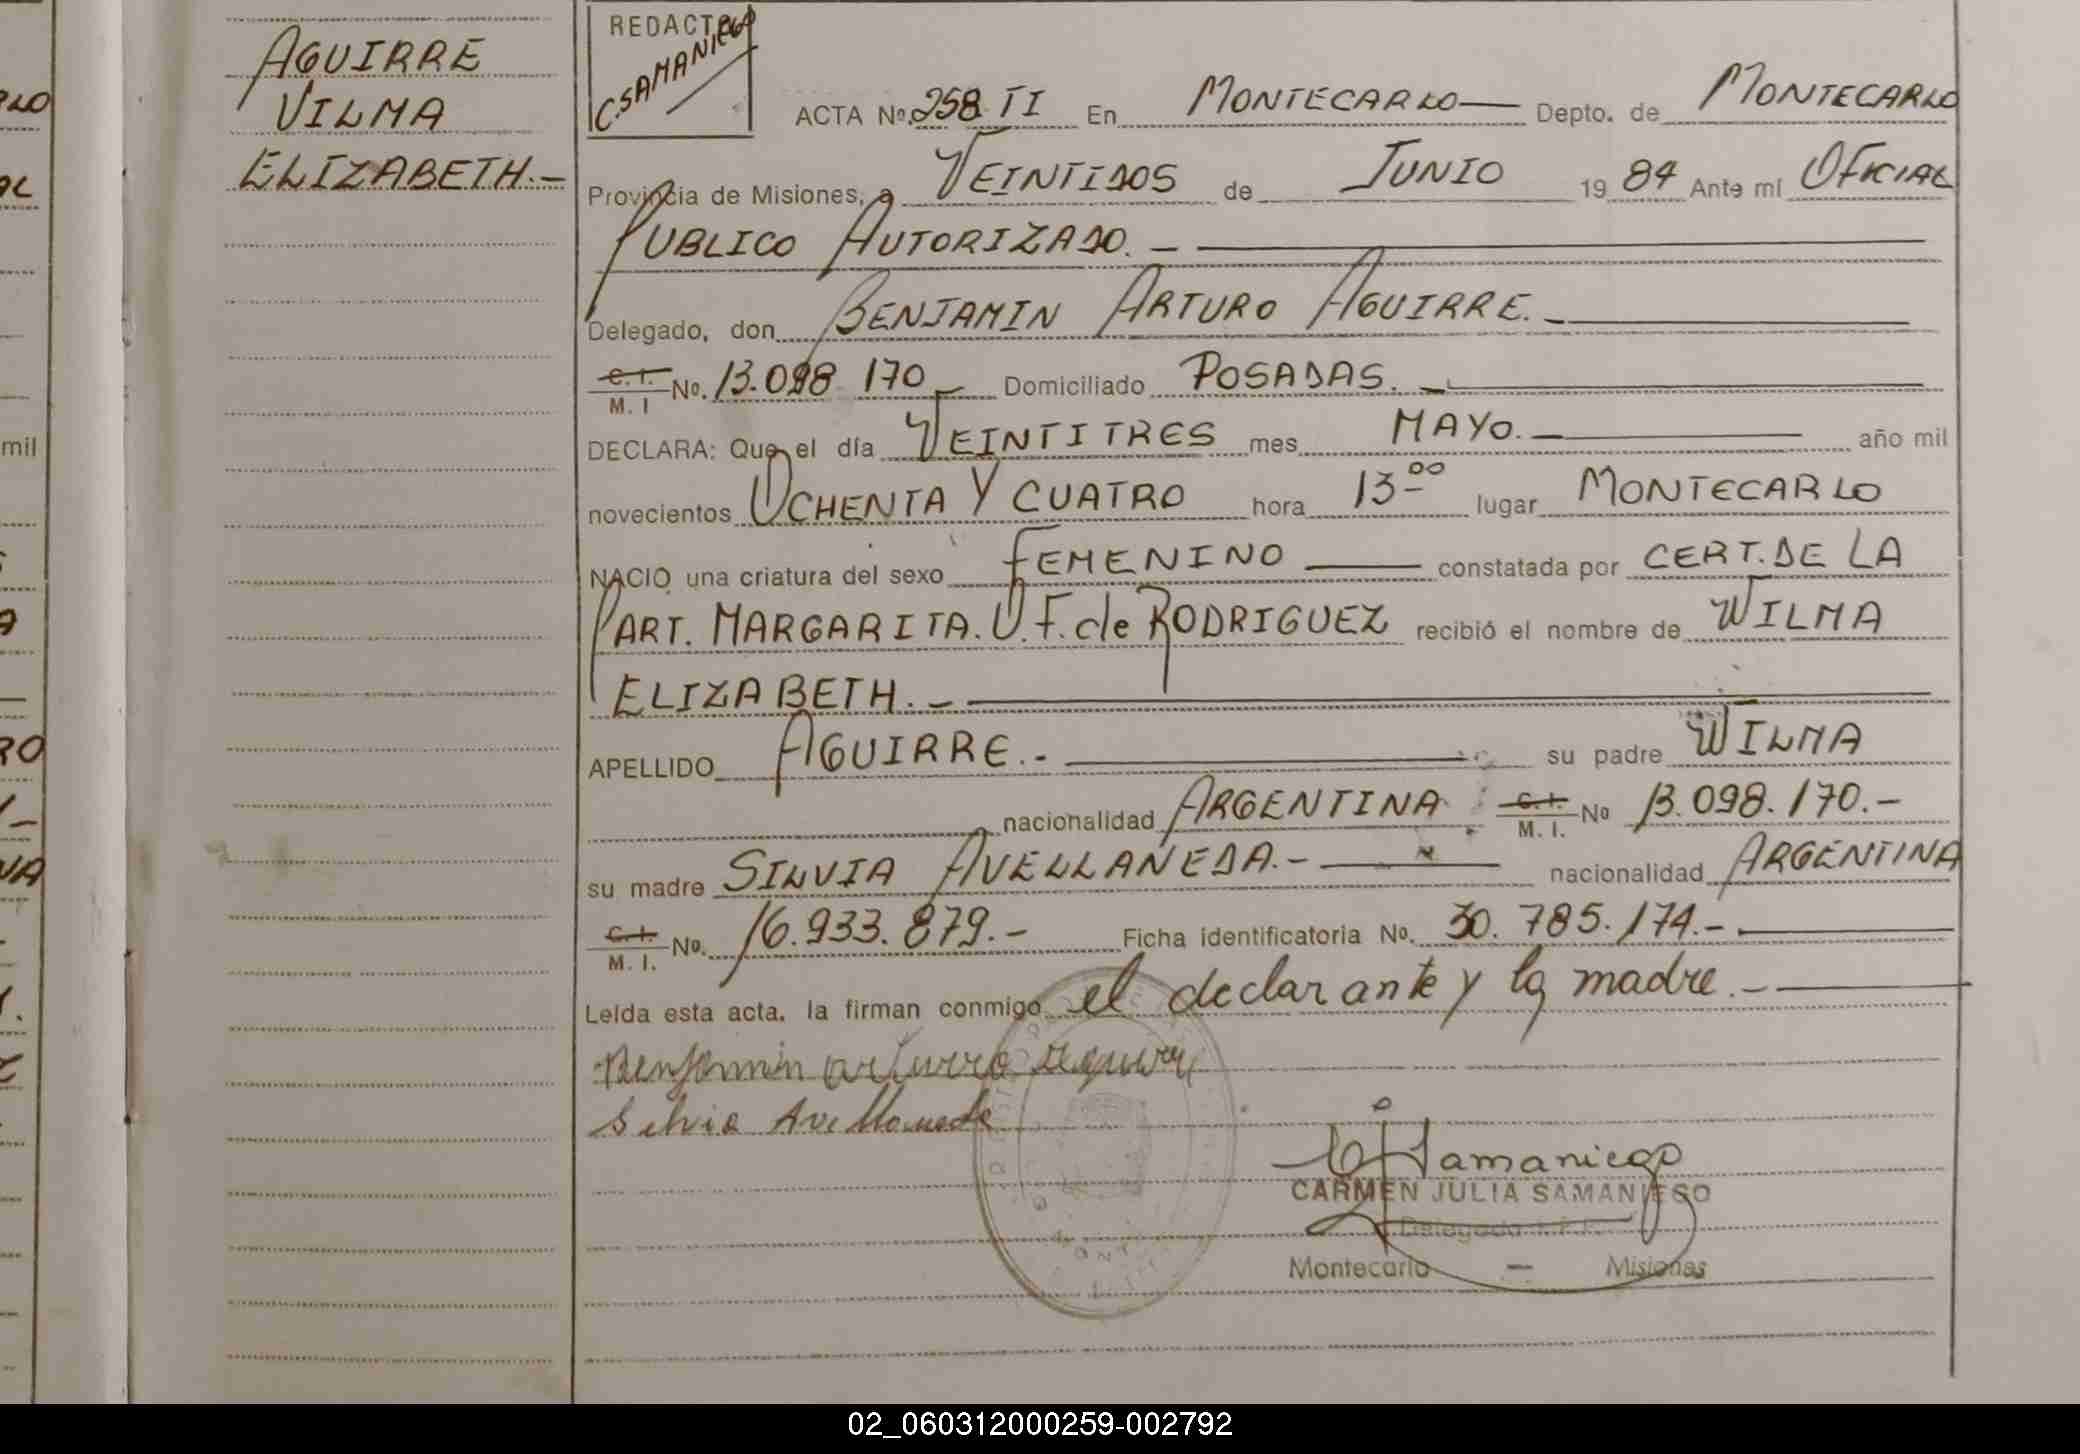 AGUIRRE
VILMA
ELIZABETH.-
REDACTOR
C. SAMANIEGO
ACTA Nº. 258 TI En MONTECARLO Depto. de MONTECARLO
Provincia de Misiones, a VEINTIDOS de JUNIO 19 84 Ante mi OFICIAL
PUBLICO AUTORIZADO.-
Delegado, don BENJAMIN ARTURO AGUIRRE.-
C. I. M. I No. 13.098 170 Domiciliado POSADAS.-
DECLARA: Que el día VEINTITRES mes MAYO.- año mil
novecientos OCHENTA Y CUATRO hora 13 00 lugar MONTECARLO
NACIO una criatura del sexo FEMENINO constatada por CERT. DE LA
PART. MARGARITA. U. F. de RODRIGUEZ recibió el nombre de WILMA
ELIZABETH.-
APELLIDO AGUIRRE.- su padre WILMA
nacionalidad ARGENTINA C. I. M. I. No 13.098.170.-
su madre SILVIA AVELLANEDA.- nacionalidad ARGENTINA
C. I. M. I. No. 16.933.879.- Ficha identificatoria No. 30.785.174.-
Leída esta acta, la firman conmigo el declarante y la madre.-
Benjamin arturro
Silvia Avellaneda
Samaniego
CARMEN JULIA SAMANIEGO
Montecarlo - Misiones
02_060312000259-002792